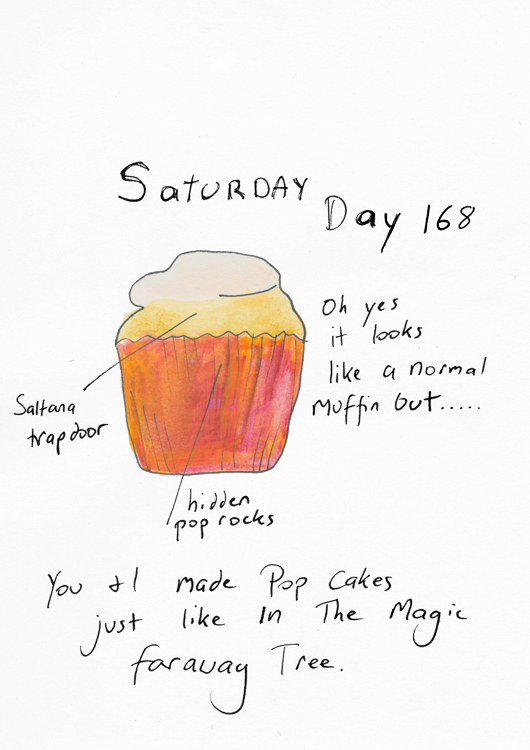 SATURDAY
Day 168
Oh yes
it looks
like a normal
Muffin but.....
Saltana
trapdoor
hidden
pop rocks
You & I made Pop Cakes
just like In The Magic
faraway Tree.